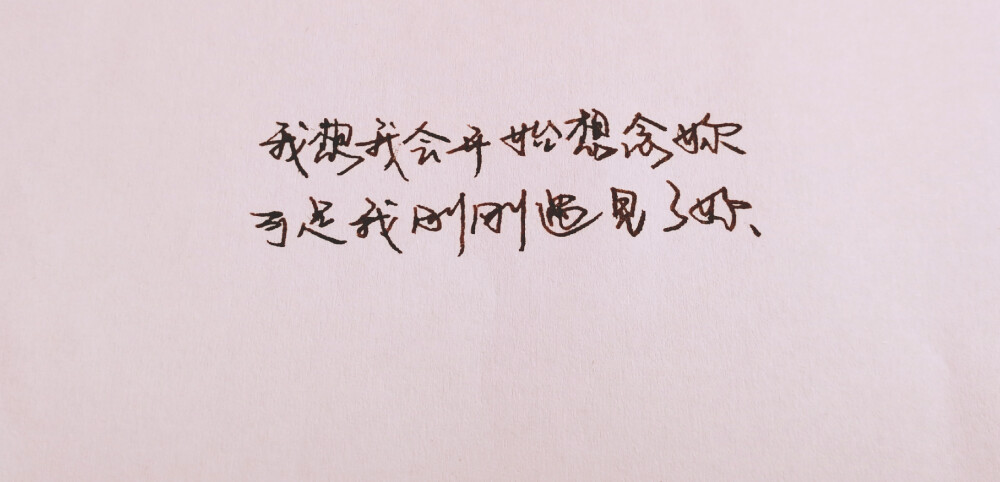 我想我会开始想念妳
可是我刚刚遇见了妳、